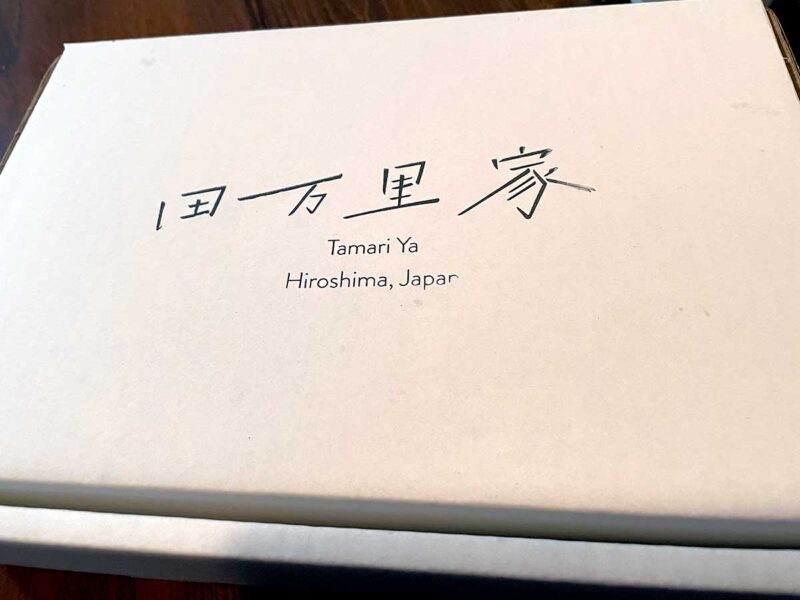 田万里家
Tamari Ya
Hiroshima, Japan